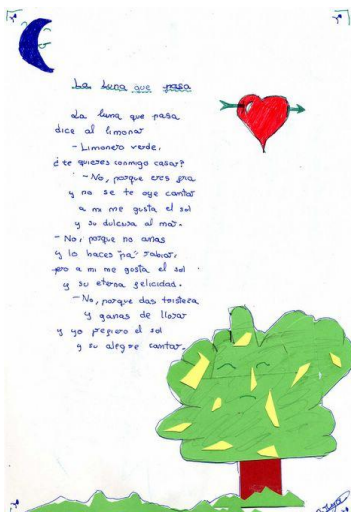 La Luna que pasa
La luna que pasa
dice al limonar
- Limonero verde,
¿te quieres conmigo casar?
- No, porque eres fria
y no se te oye cantar
a mi me gusta el sol
y su dulzura al mar.
- No, porque no amas
y lo haces "pa" rabiar,
pero a mi me gusta el sol
y su eterna felicidad.
- No, porque das tristeza
y ganas de llorar
y yo prefiero el sol
y su alegre cantar.